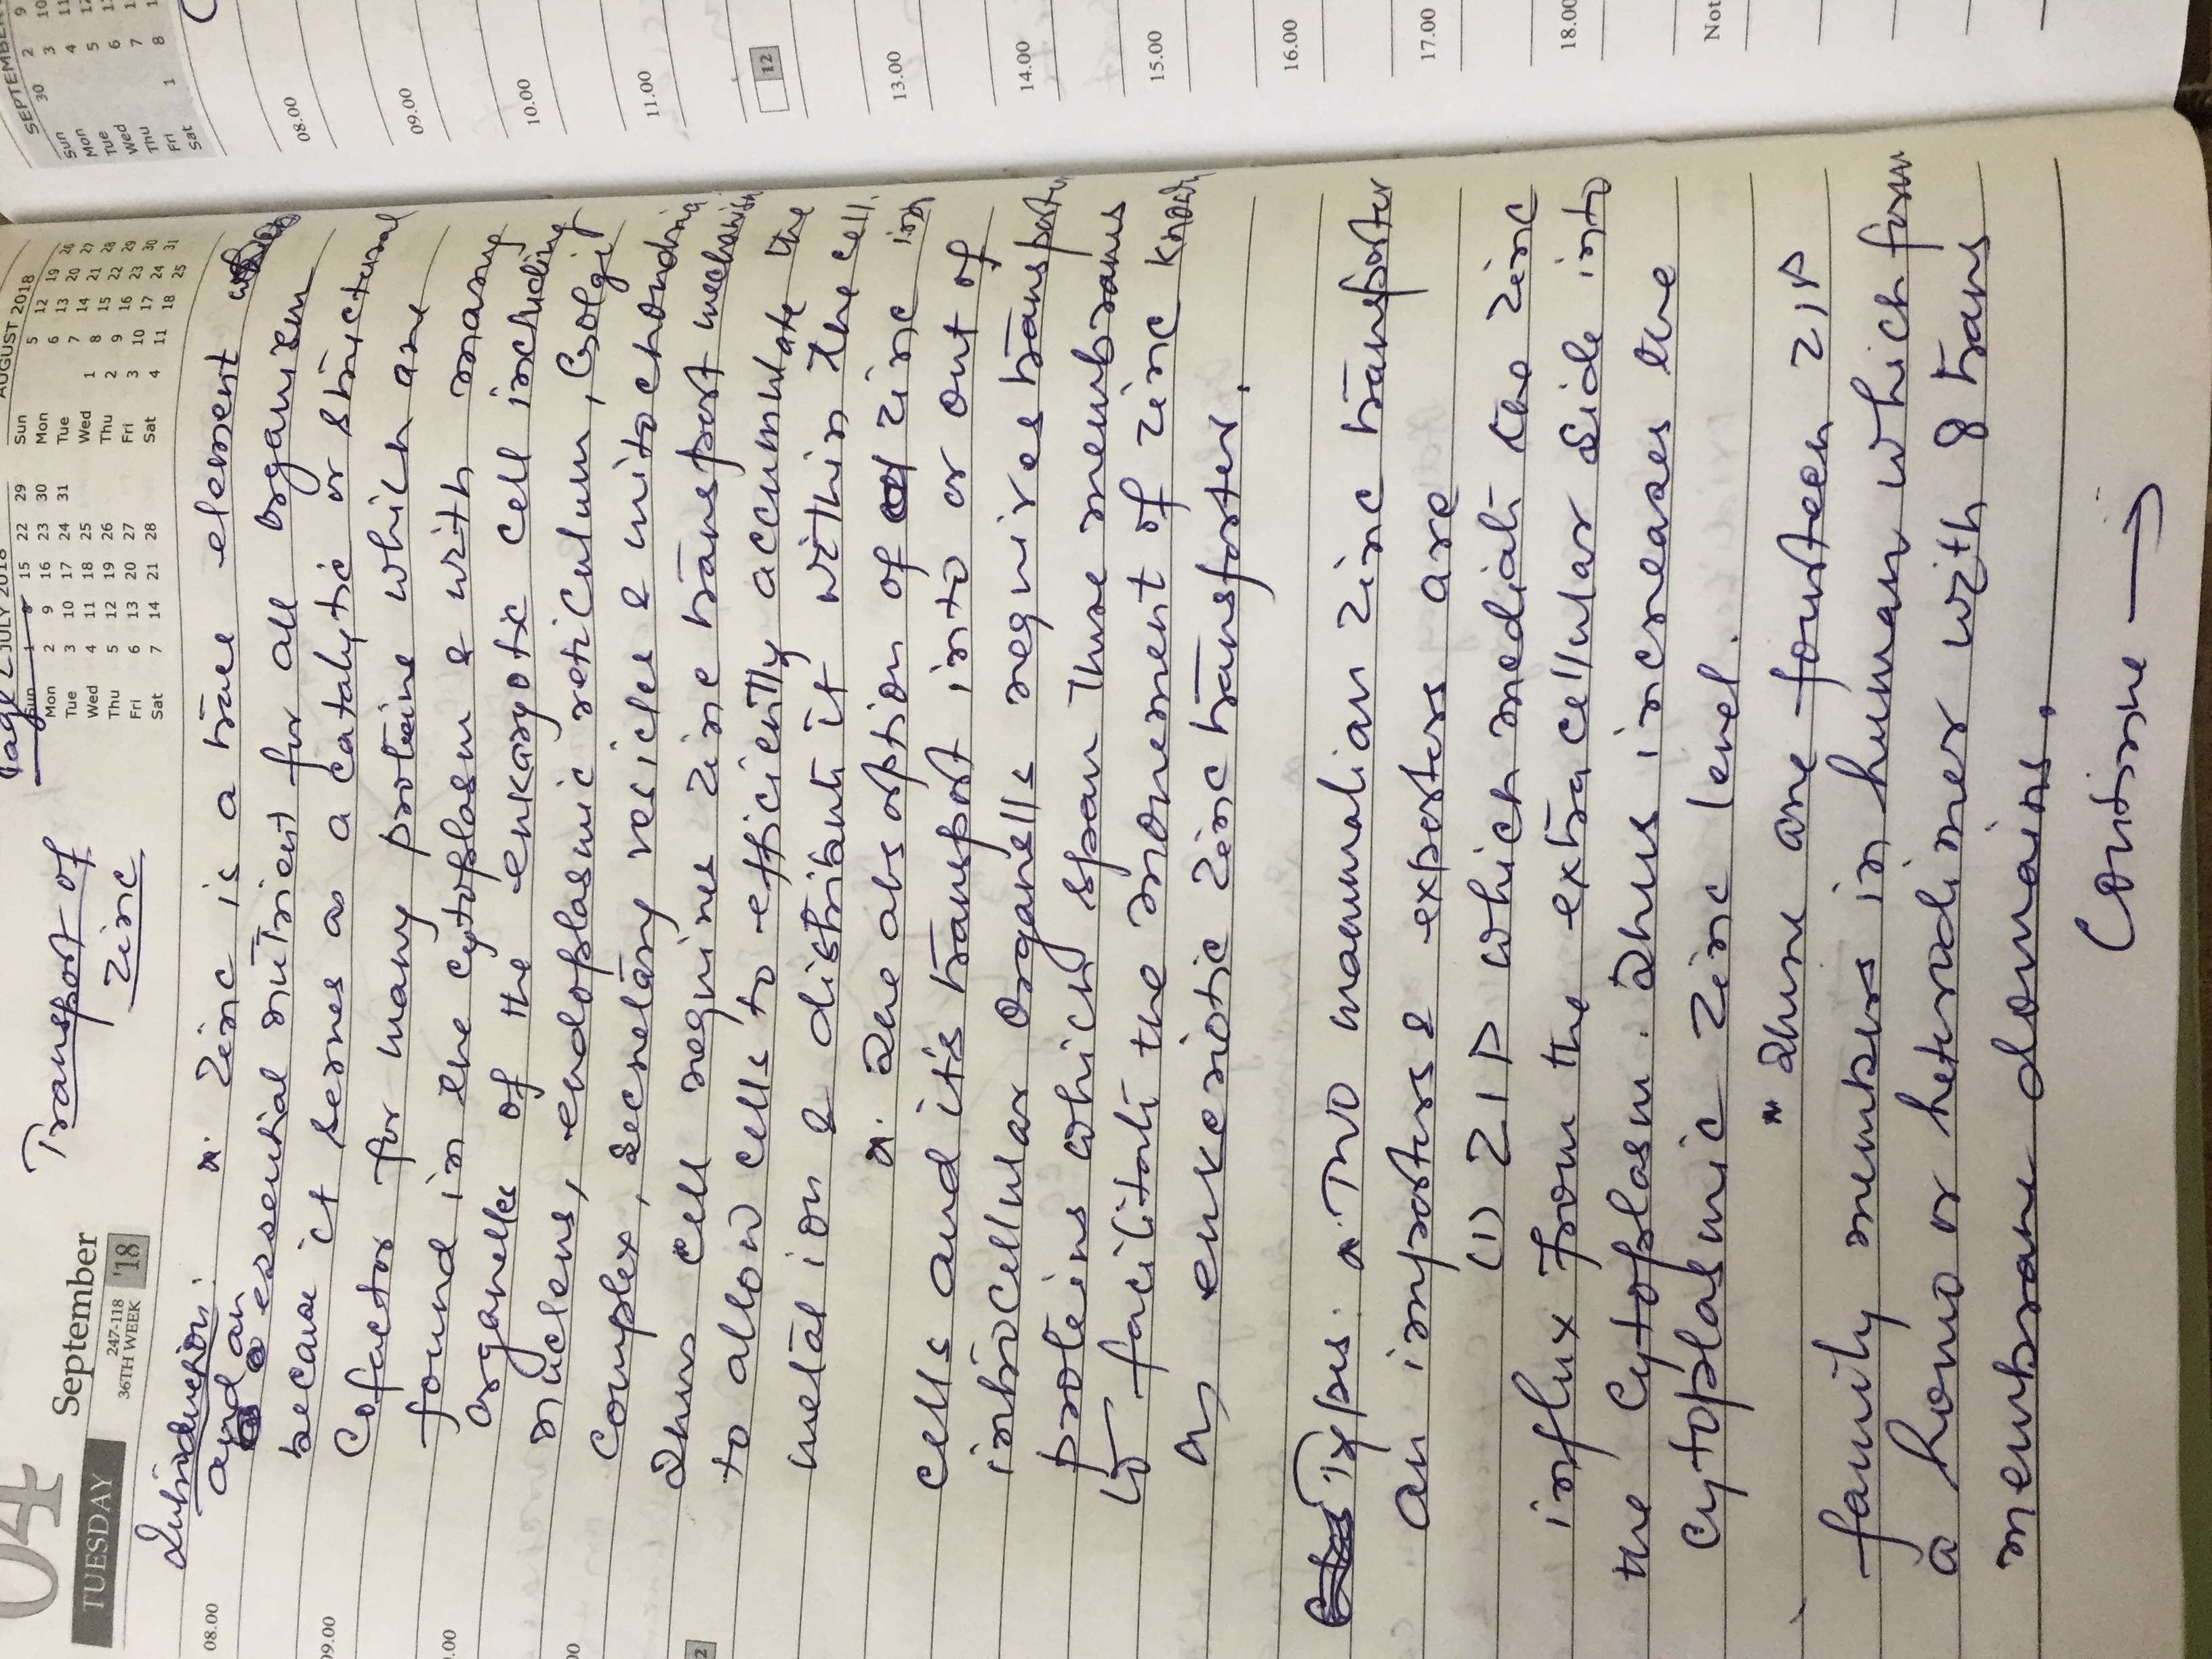 04
September
TUESDAY
247-118
36TH WEEK
'18
Transport of
Zinc
Page
JULY 2018
Sun 1 8 15 22 29
Mon 2 9 16 23 30
Tue 3 10 17 24 31
Wed 4 11 18 25
Thu 5 12 19 26
Fri 6 13 20 27
Sat 7 14 21 28
AUGUST 2018
Sun 5 12 19 26
Mon 6 13 20 27
Tue 7 14 21 28
Wed 1 8 15 22 29
Thu 2 9 16 23 30
Fri 3 10 17 24 31
Sat 4 11 18 25
Introduction: * Zinc is a trace element
08.00
and an essential nutrient for all organism
because it serves as a catalytic or structural
09.00
Cofactor for many proteins which are
found in the cytoplasm & with many
organelles of the eukaryotic cell including
nucleus, endoplasmic reticulum, Golgi
complex, secretary vesicles & mitochondria
Thus cell requires zinc transport mechanism
to allow cells to efficiently accumulate the
metal ion & distribute it within the cell.
* The absorption of zinc into
cells and its transport into or out of
intracellular organells requires transporter
proteins which span these membranes
to facilitate the movement of zinc known
as eukeriotic zinc transporter.
Types: * Two mammalian zinc transporter
an importers & exporters are
(1) ZIP which mediate the zinc
influx from the extracellular side into
the cytoplasm. Thus increases the
cytoplasmic zinc level.
* There are fourteen ZIP
family members in human which form
a homo or heterodimer with 8 trans
membrane domains.
Continue →
SEPTEMBER
Sun 30 2 9
Mon 3 10
Tue 4 11
Wed 5 12
Thu 6
Fri 7
Sat 1 8
08.00
09.00
10.00
11.00
12
13.00
14.00
15.00
16.00
17.00
18.00
Not